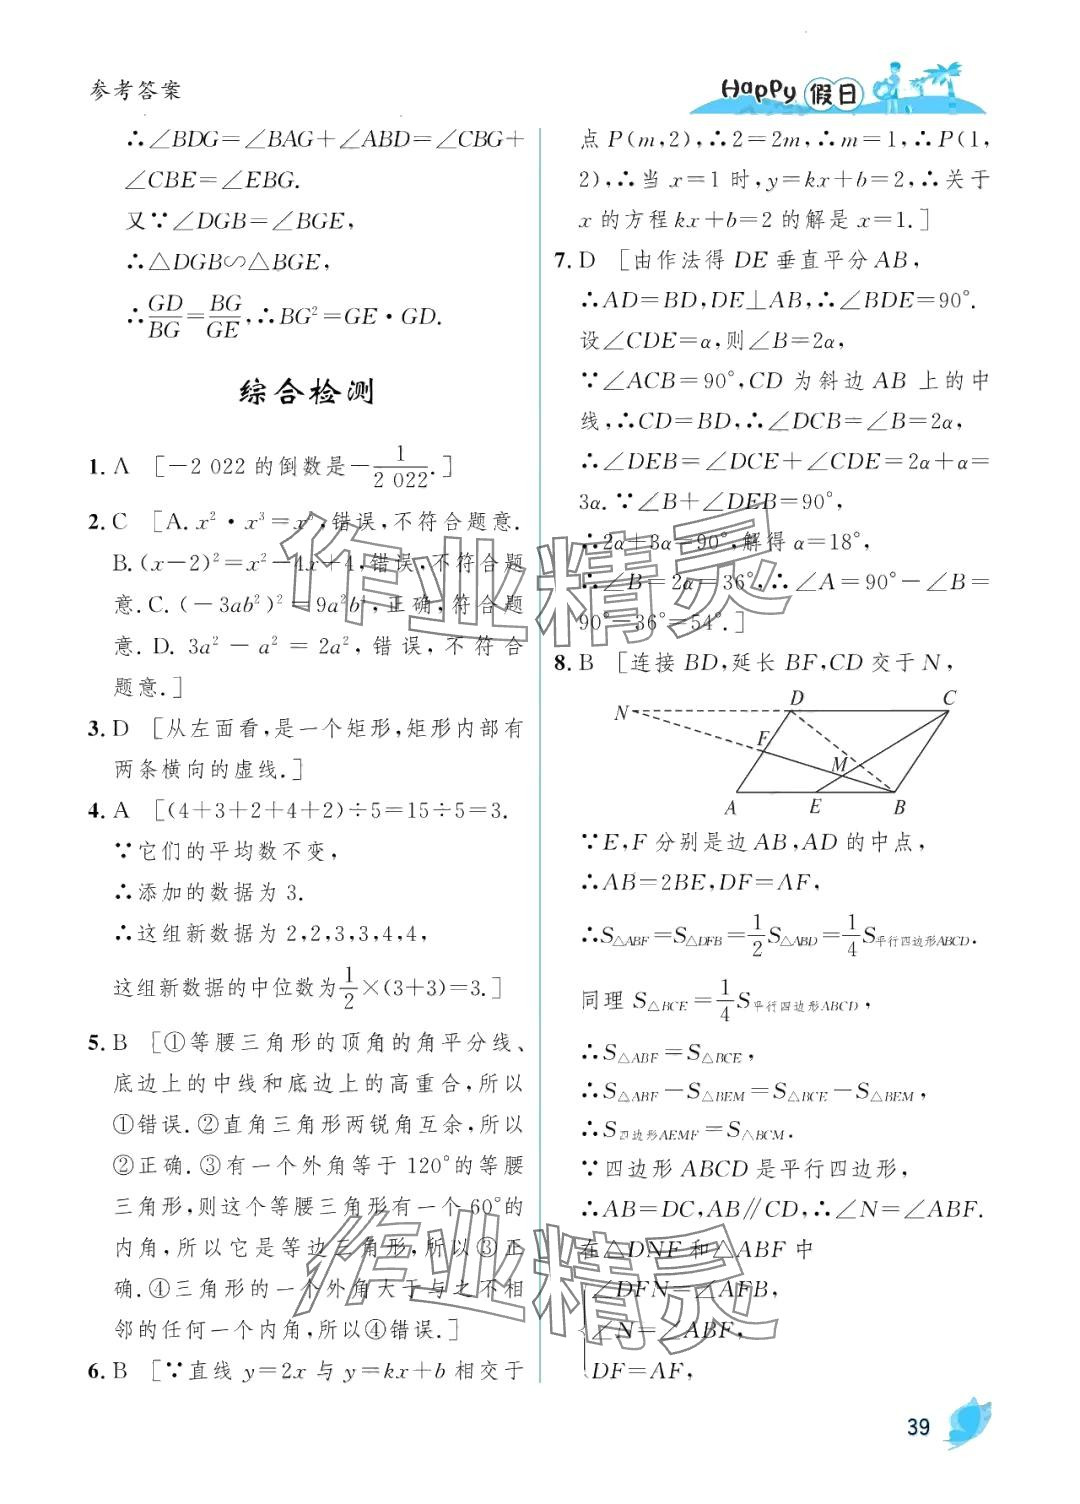 参考答案
Happy 假日
∴∠BDG=∠BAG+∠ABD=∠CBG+
∠CBE=∠EBG.
又∵∠DGB=∠BGE,
∴△DGB∽△BGE,
∴GD/BG=BG/GE,∴BG²=GE·GD.
综合检测
1. A [-2 022的倒数是-1/2 022.]
2. C [A. x²·x³=x⁵,错误,不符合题意.
B.(x-2)²=x²-4x+4,错误,不符合题
意.C.(-3ab²)²=9a²b⁴,正确,符合题
意. D. 3a²-a²=2a²,错误,不符合
题意.]
3. D [从左面看,是一个矩形,矩形内部有
两条横向的虚线.]
4. A [(4+3+2+4+2)÷5=15÷5=3.
∵它们的平均数不变,
∴添加的数据为 3.
∴这组新数据为 2,2,3,3,4,4,
这组新数据的中位数为1/2×(3+3)=3.]
5. B [①等腰三角形的顶角的角平分线、
底边上的中线和底边上的高重合,所以
①错误.②直角三角形两锐角互余,所以
②正确.③有一个外角等于 120°的等腰
三角形,则这个等腰三角形有一个 60°的
内角,所以它是等边三角形,所以③正
确.④三角形的一个外角大于与之不相
邻的任何一个内角,所以④错误.]
6. B [∵直线 y=2x 与 y=kx+b 相交于
点 P(m,2),∴2=2m,∴m=1,∴P(1,
2),∴当 x=1 时,y=kx+b=2,∴关于
x 的方程 kx+b=2 的解是 x=1.]
7. D [由作法得 DE 垂直平分 AB,
∴AD=BD,DE⊥AB,∴∠BDE=90°.
设∠CDE=α,则∠B=2α,
∵∠ACB=90°,CD 为斜边 AB 上的中
线,∴CD=BD,∴∠DCB=∠B=2α,
∴∠DEB=∠DCE+∠CDE=2α+α=
3α.∵∠B+∠DEB=90°,
∴2α+3α=90°,解得 α=18°,
∴∠B=2α=36°,∴∠A=90°-∠B=
90°-36°=54°.]
8. B [连接 BD,延长 BF,CD 交于 N,
N D C
F M
A E B
∵E,F 分别是边 AB,AD 的中点,
∴AB=2BE,DF=AF,
∴S△ABF=S△DFB=1/2S△ABD=1/4S平行四边形ABCD.
同理 S△BCE=1/4S平行四边形ABCD,
∴S△ABF=S△BCE,
∴S△ABF-S△BEM=S△BCE-S△BEM,
∴S四边形AEMF=S△BCM.
∵四边形 ABCD 是平行四边形,
∴AB=DC,AB∥CD,∴∠N=∠ABF.
在△DNF 和△ABF 中
∠DFN=∠AFB,
∠N=∠ABF,
DF=AF,
作业精灵
作业精灵
39